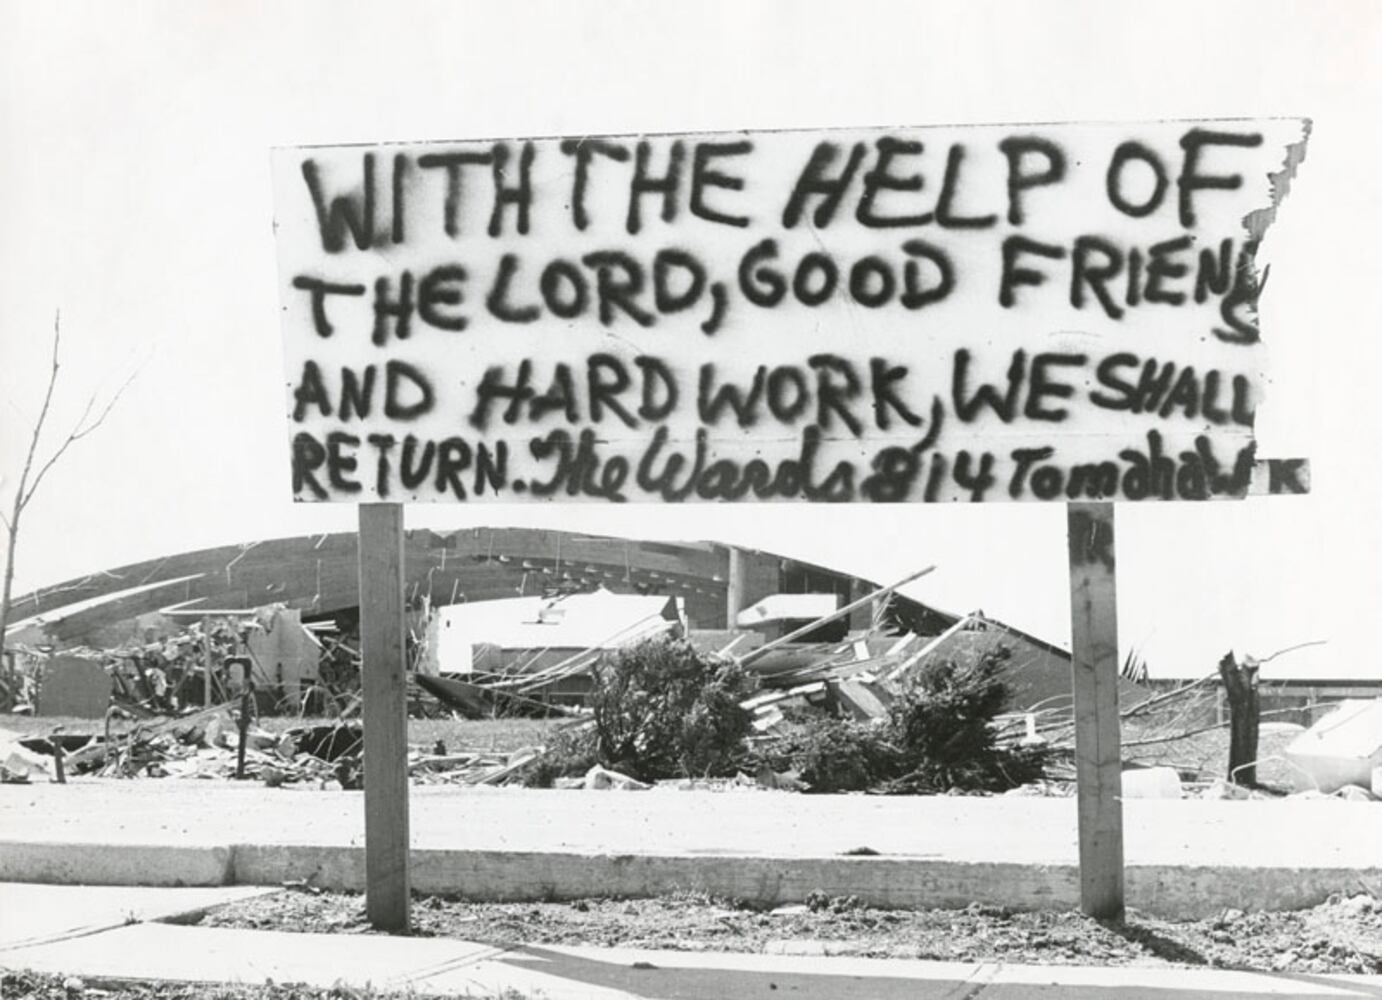 WITH THE HELP OF
THE LORD, GOOD FRIENDS
AND HARD WORK, WE SHALL
RETURN. The Wards 814 Tomahawk